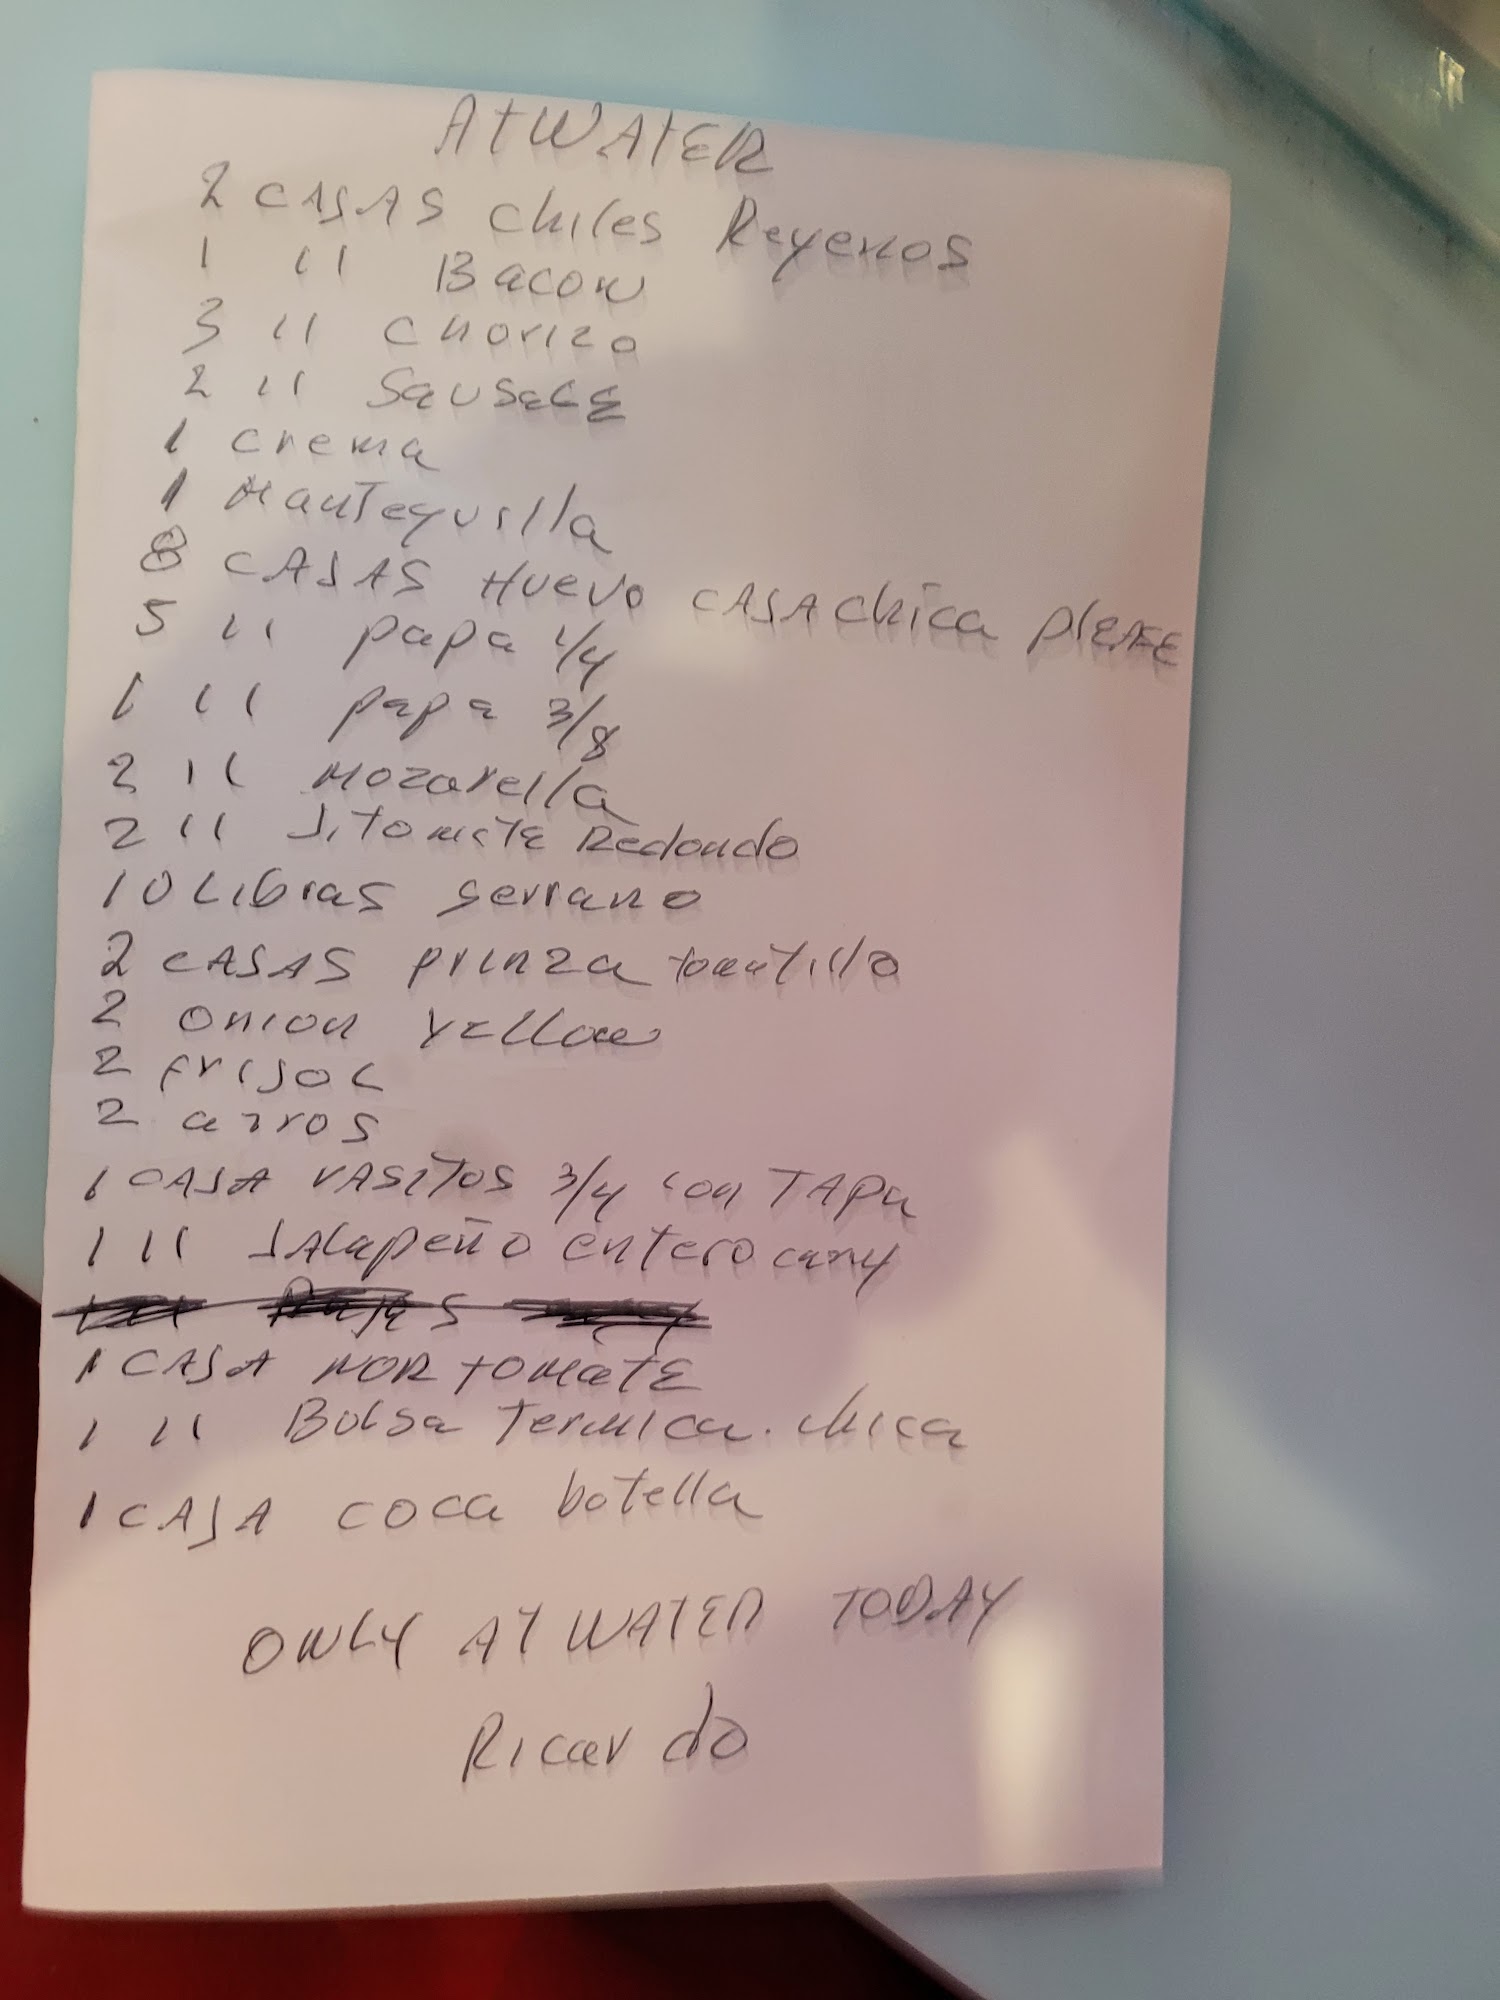 ATWATER
2 CAJAS chiles Reyenos
1 " Bacon
3 " chorizo
2 " Sausage
1 crema
1 Mantequilla
8 CAJAS Huevo CAJA chica please
5 " papa 1/4
1 " papa 3/8
2 " Mozarella
2 " Jitomate Redondo
10 Libras serrano
2 CAJAS prinza tomatillo
2 onion yellow
2 frijol
2 arros
1 CAJA VASITOS 3/4 con TAPA
1 " JALapeño entero
1 CAJA NOR TOMATE
1 " Bolsa Termica. chica
1 CAJA coca botella
ONLY ATWATER TODAY
Ricardo